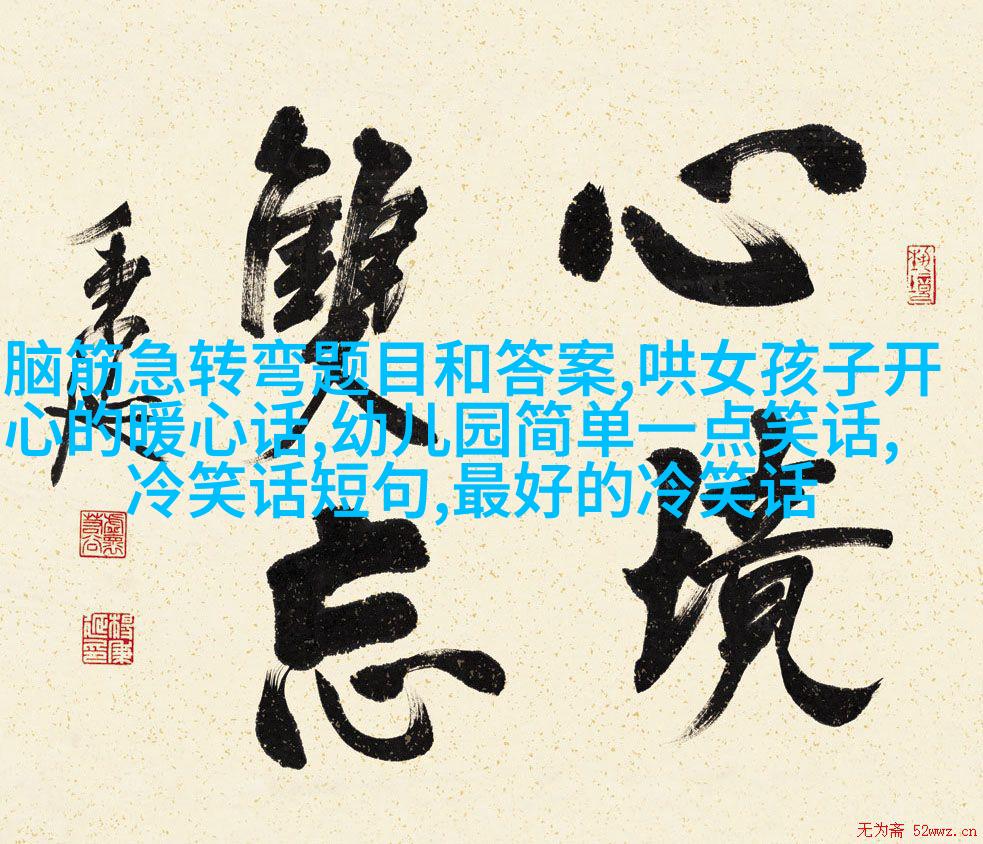 心境
雙忘
脑筋急转弯题目和答案,哄女孩子开
心的暖心话,幼儿园简单一点笑话,
冷笑话短句,最好的冷笑话
无为斋 52wwz.cn